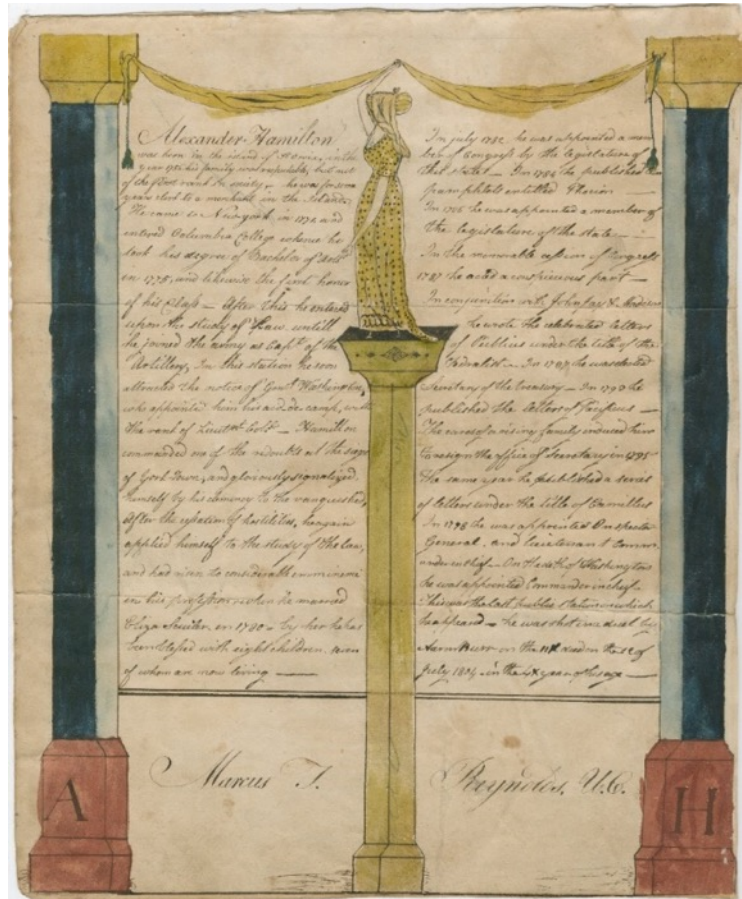 Alexander Hamilton
was born in the island of in the
year 175 his family was respectable, but not
of the first rank in society, he was for some
years clerk to a merchant in the Islands
He came to New york in 1772 and
entered Columbia College where he
took his degree of Bachelor of
in 1775, and likewise the first honor
of his Class — After this he entered
upon the study of Law untill
he joined the army as Capt. of the
Artillery, In this station he soon
attracted the notice of Genl. Washington,
who appointed him his aid, de camp, with
the rank of Lieut. Col. — Hamilton
commanded one of the redoubts at the siege
of York Town, and gloriously signalized
himself by his clemency to the vanquished,
After the of hostilities, he again
applied himself to the study of the Law,
and had risen to considerable
in his profession when he married
Eliza in 1780 — by her he has
been blessed with eight children. seven
of whom are now living —
In july 1782 he was appointed a mem
ber of Congress by the legislature of
that state — In 1784 he published
pamphlets entitled Phocion
In 1786 he was appointed a member of
the legislature of the state —
In the memorable of Congress
1787 he acted a conspicuous part —
In conjunction with John Jay &
he wrote the celebrated letters
of Publius under the title of the
Federalist — In 1789, he was
Secretary of the treasury — In 1793 he
published the letters of Pacificus —
The cares of a rising family induced him
to resign the office of Secretary in 1795
The same year he published a series
of letters under the title of Camillus
In 1798 he was appointed Inspector
General, and lieutenant
under chief — On death of Washington
he was appointed Commander in chief
This was the last public station in which
he appeard — he was shot in a duel by
Aaron Burr on the 11th died on the 12 of
july 1804 in the year of his age —
Marcus T. Reynolds, U.C.
A H